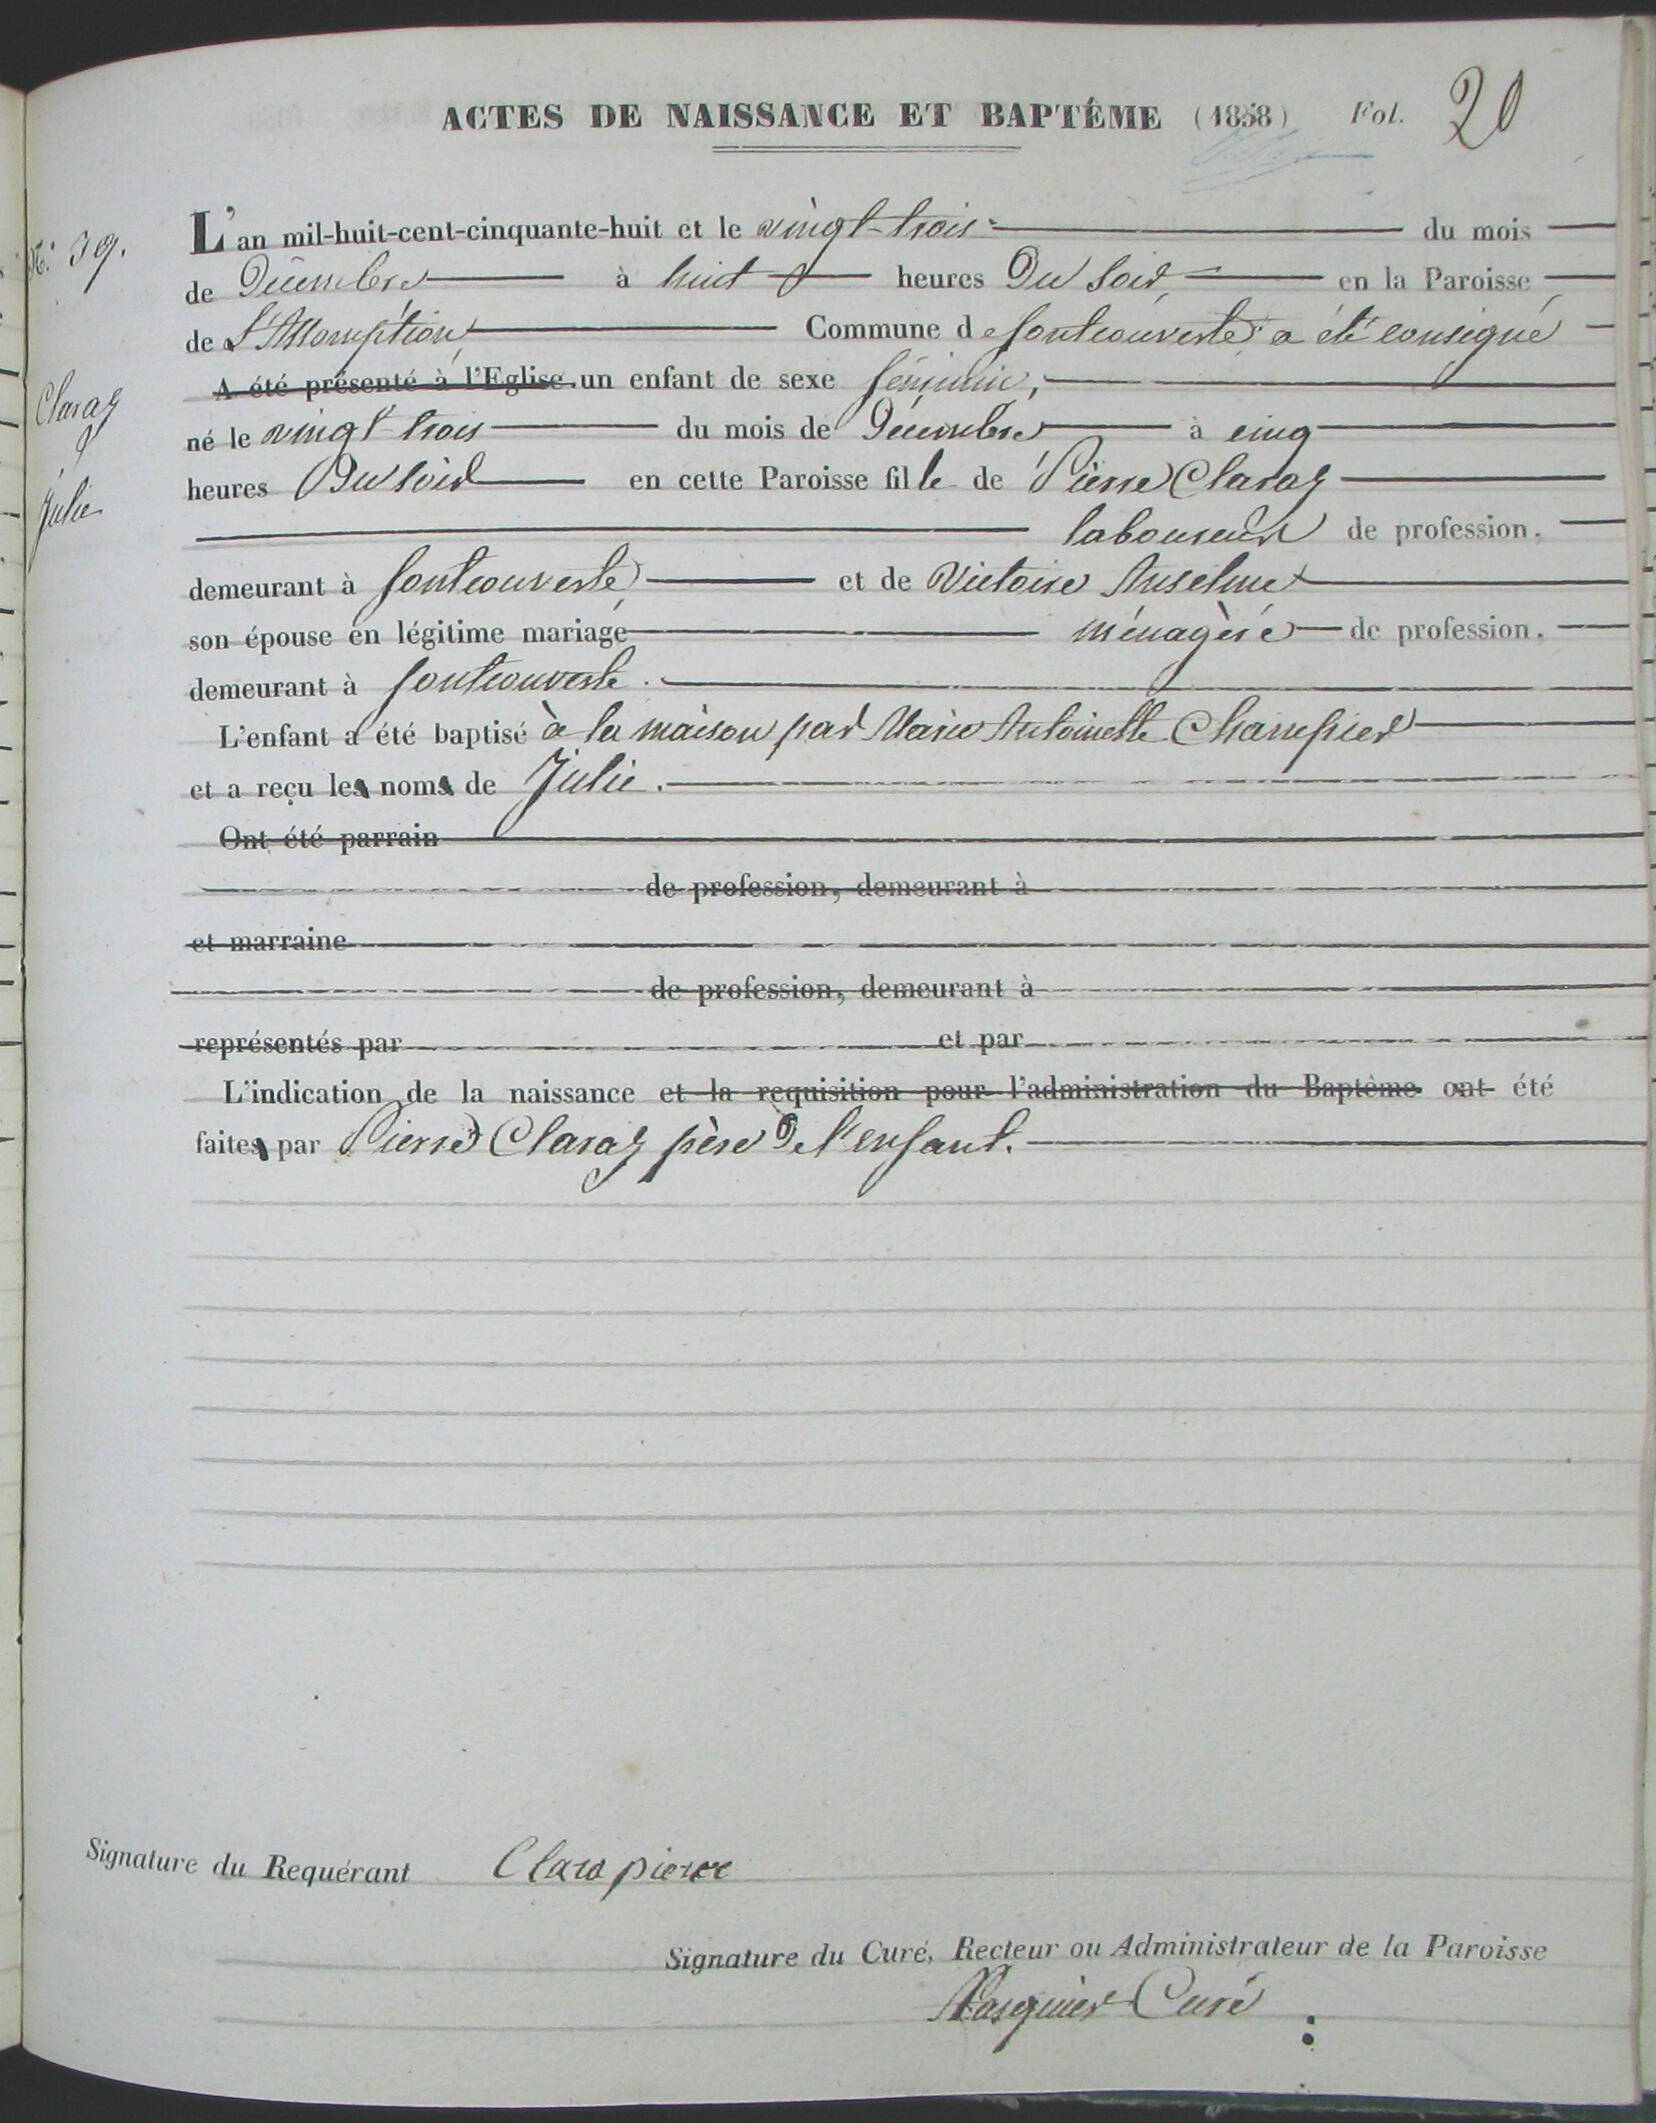 ACTES DE NAISSANCE ET BAPTÊME (1858) Fol. 20
N.° 39.
L'an mil-huit-cent-cinquante-huit et le vingt-trois du mois
de Décembre à huit heures Du Soir, en la Paroisse
de L'Assomption Commune de fontcouverte a été consigné
A été présenté à l'Eglise un enfant de sexe féminin,
Claraz
né le vingt trois du mois de Décembre à cinq
heures Du soir en cette Paroisse fille de Pierre Claraz
Julie
laboureur de profession.
demeurant à fontcouverte, et de Victoire Anselme
son épouse en légitime mariage ménagère de profession.
demeurant à fontcouverte.
L'enfant a été baptisé à la maison par Marie Antoinette Champier
et a reçu les noms de Julie.
Ont été parrain
de profession, demeurant à
et marraine
de profession, demeurant à
représentés par et par
L'indication de la naissance et la requisition pour l'administration du Baptême ont été
faites par Pierre Claraz père de l'enfant.
Signature du Requérant Clara pierre
Signature du Curé, Recteur ou Administrateur de la Paroisse
Curé